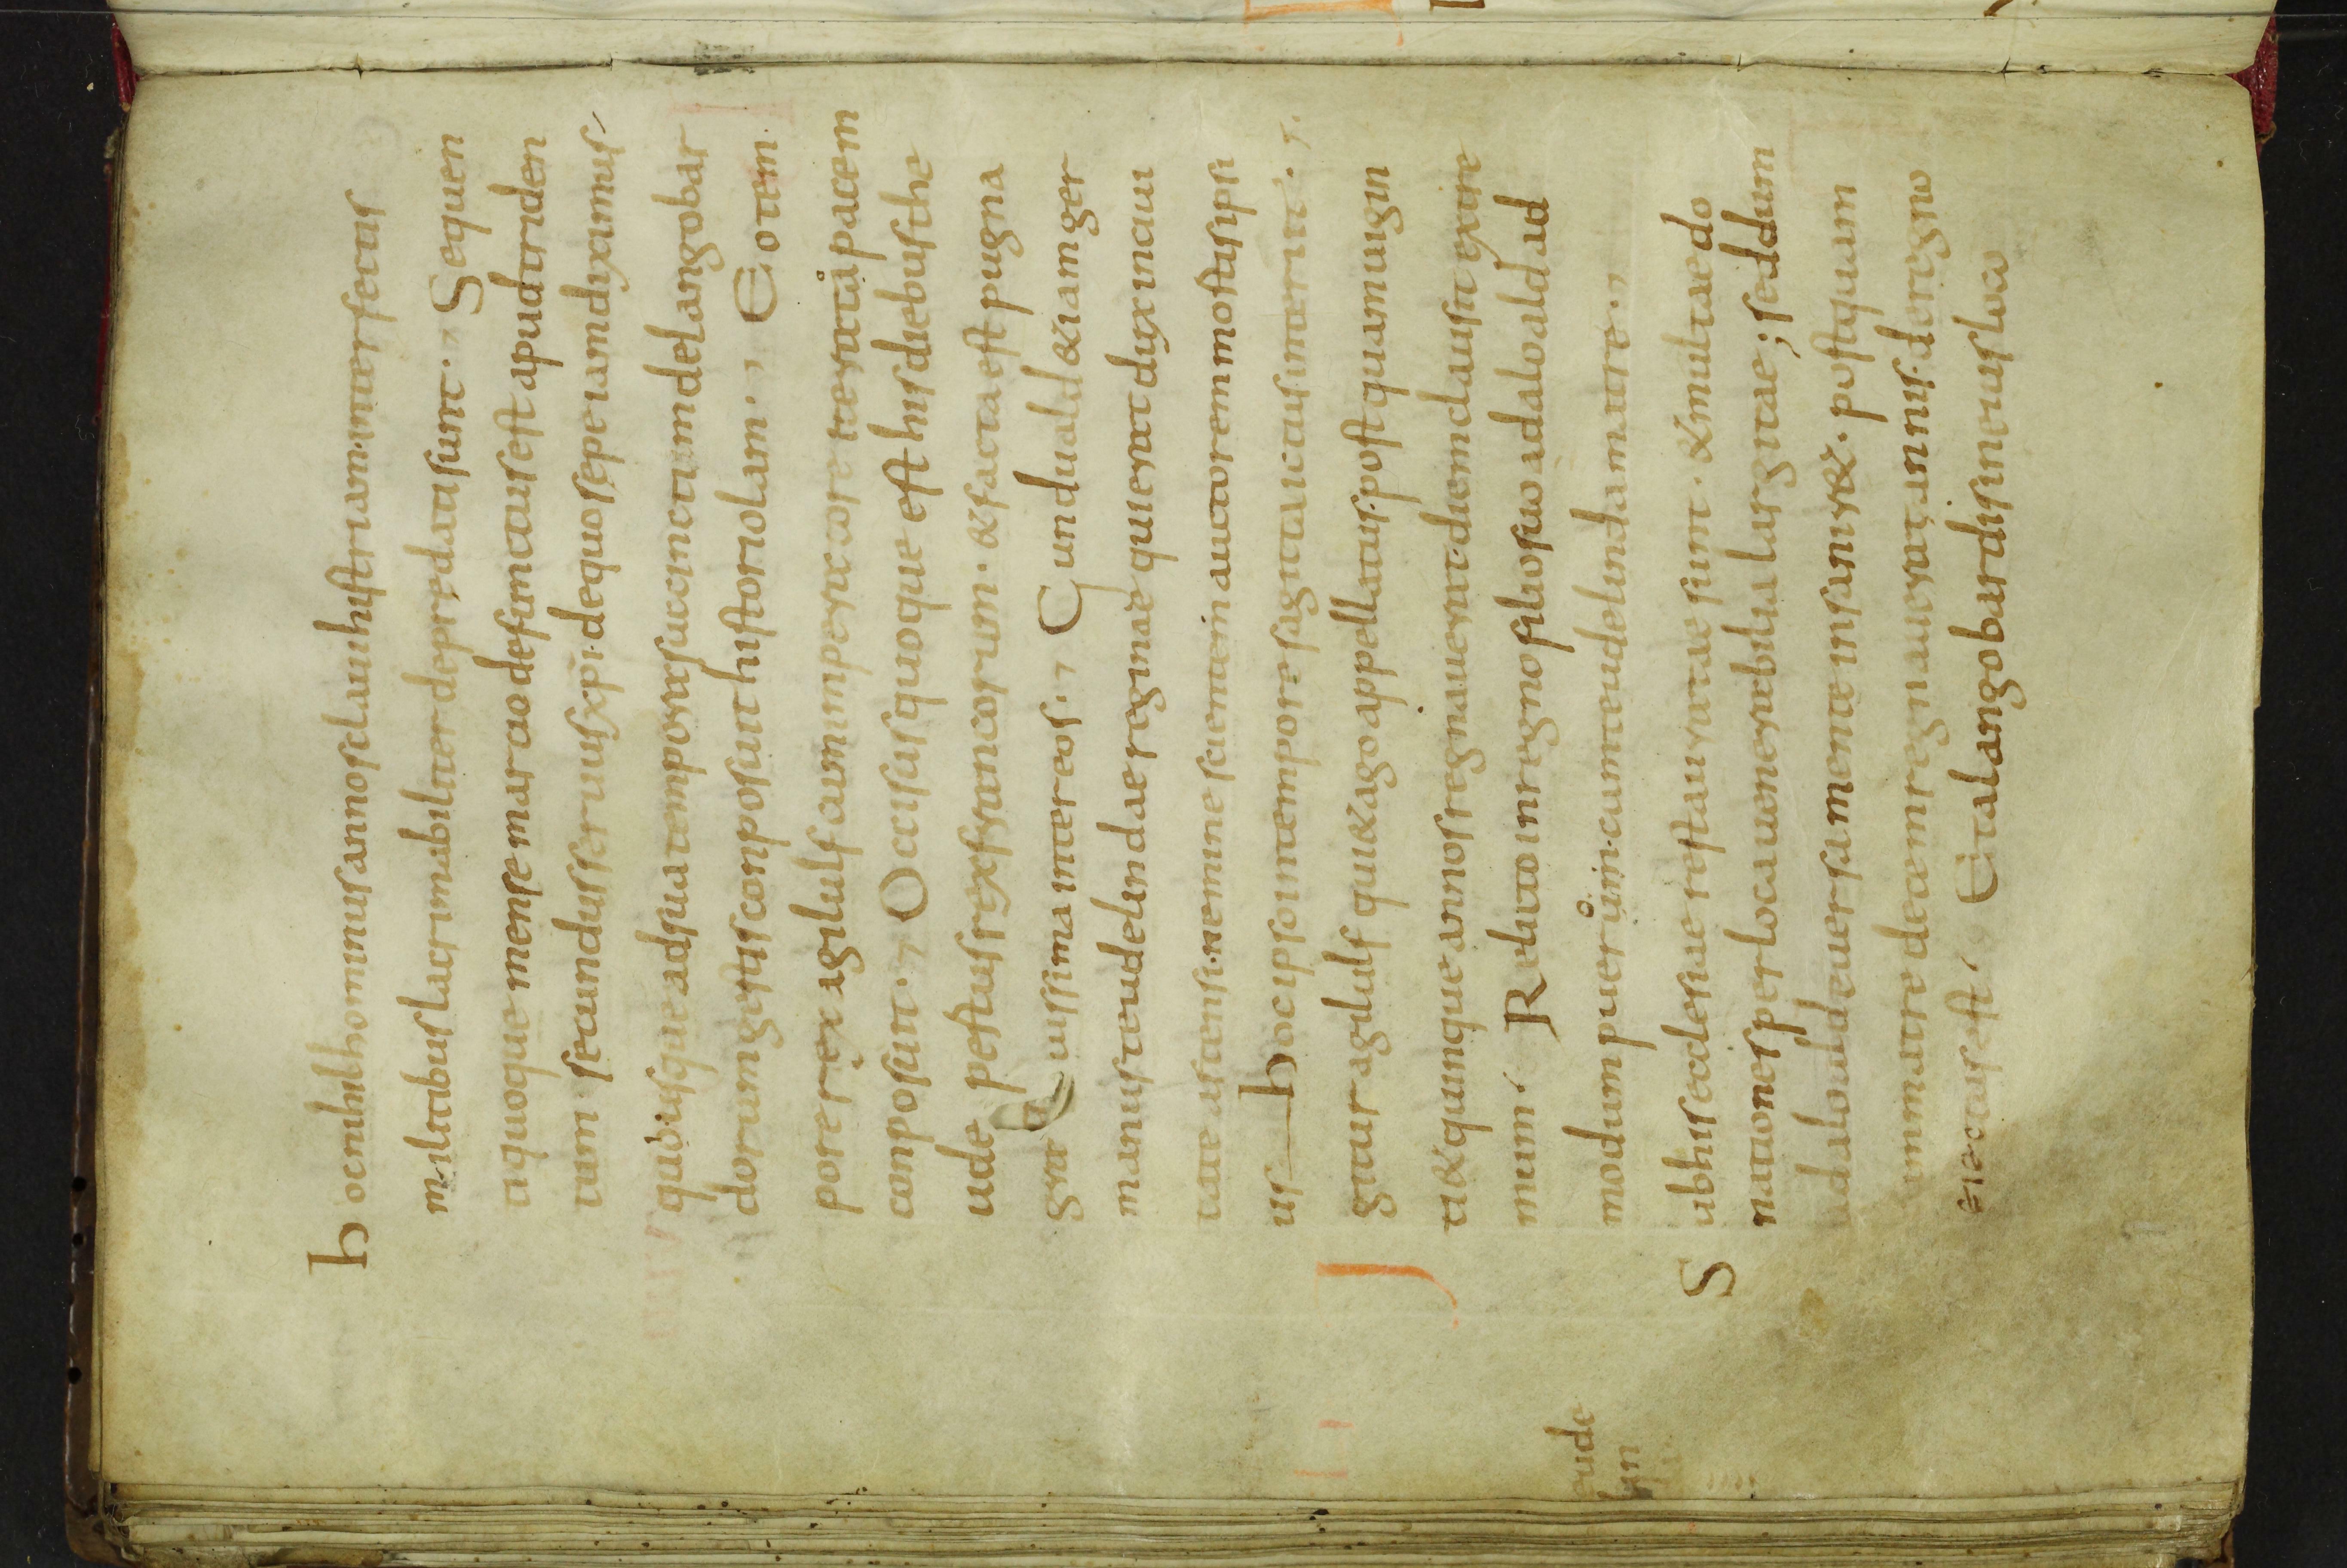 hocnihilhominusannosclauihistriam.interfectis
militibuslacrimabiliter depredatisunt. Sequen
tiquoque mensemartiodefunctusest apudtriden
tum. secundusseruusxpi. dequosepeiamdiximus
quiusque adsuatemporasuccinctamdelangobar
dorumgestisconposuithistoriolam. Eotem
porerexagilulf cumimperatore iterata pacem
conposuit. Occisusquoque est hisdiebusthe
udepestusrexfrancorum. &facta est pugna
grauissima intereos. Gunduald &iam ger
manusteudelindaereginae quieratduxinciui
tate astensi. nemine scientein auctorem mortisipsi
us hocipsoimtemporesagittaictusinteriit.
Igituragilulf qui&agoappellatus. postquamuigin
ti&quinqueannosregnauerat. diemclausit extre
mum. Relictoinregno filiosuo adaloald ad
modum puerum. cumteudelindamatre.
Subhisecclesiae restauratae sunt. &multaedo
nationesperlocauenerabilialargitae; seddum
adaloald euersamente insanir&. postquam
cummatre decemregnauerat annis. deregno
eiectus est. Etalangobardisineiusloco
eude
lin